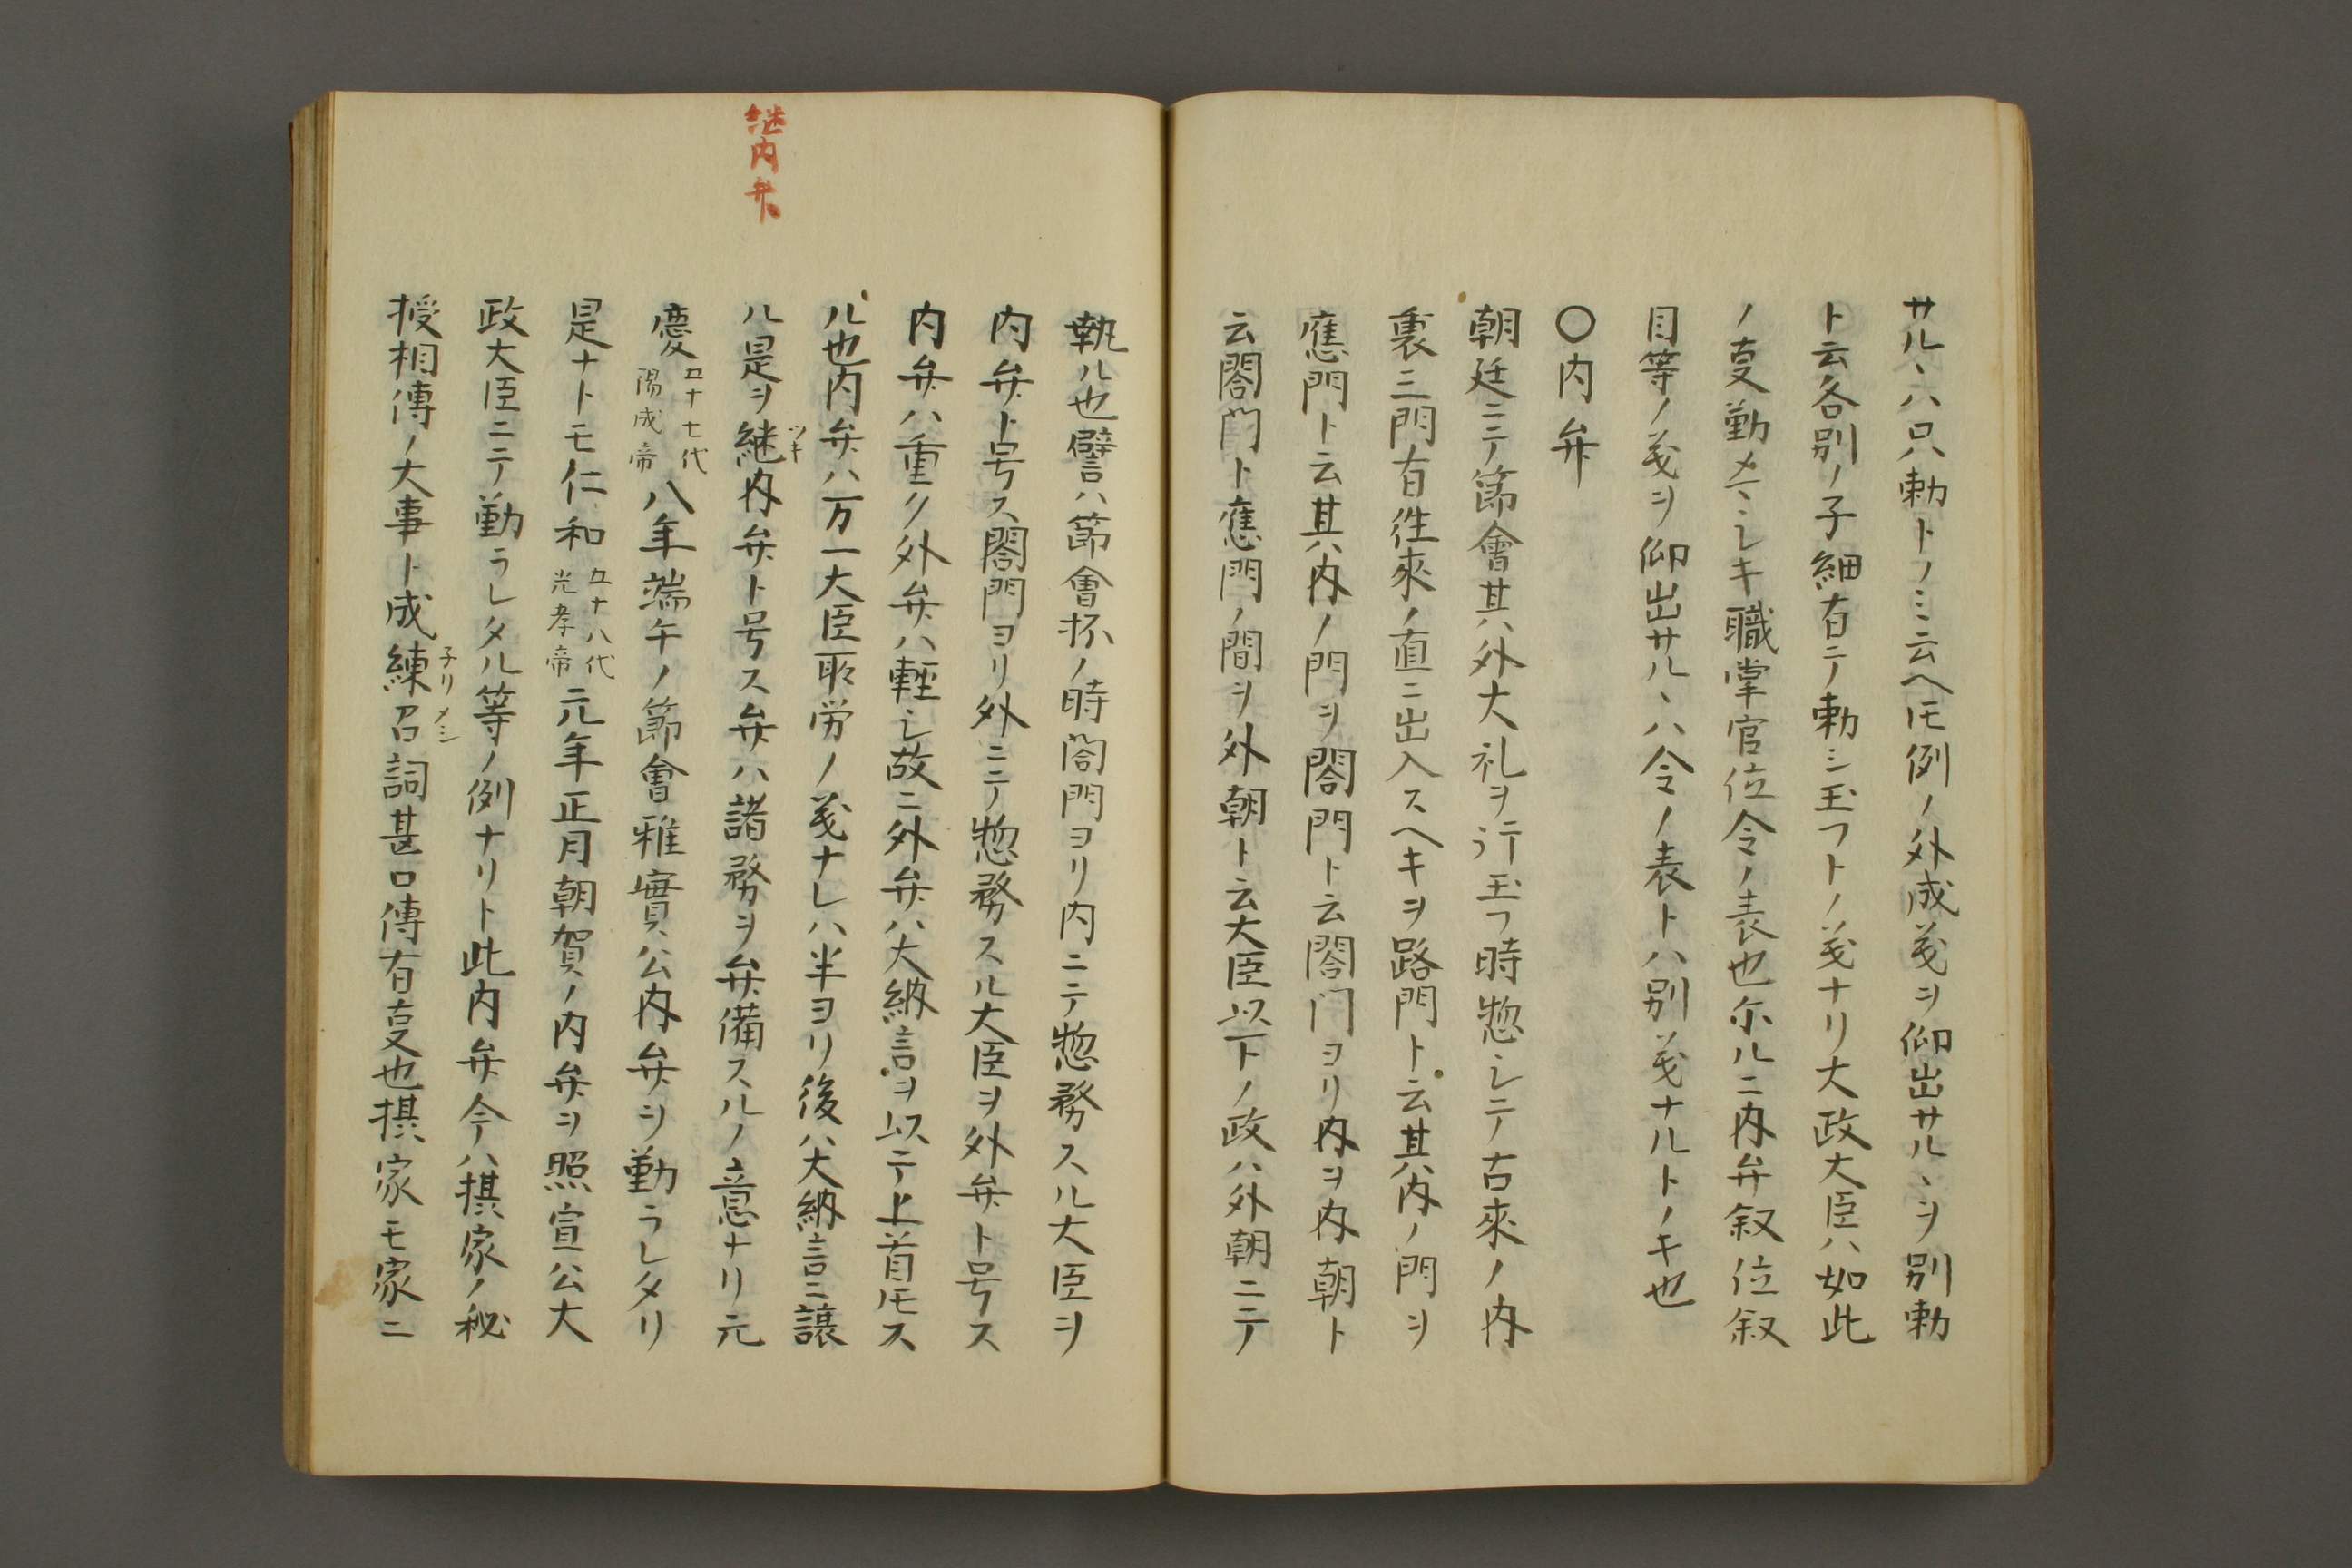 サルヽハ只勅トノミ云ヘ𪜈例ノ外成義ヲ仰出サルヽヲ別勅
ト云各別ノ子細有テ勅シ玉フトノ義ナリ大政大臣ハ如此
ノ叓勤メラレキ職掌官位令ノ表也尓ルニ内弁叙位叙
目等ノ義ヲ仰出サルヽハ令ノ表トハ別義ナルトノキ也
〇内弁
朝廷ニテ節會其外大礼ヲ行玉フ時惣シテ古來ノ内
裏三門有徃來ノ直ニ出入スヘキヲ路門ト云其内ノ門ヲ
應門ト云其内ノ門ヲ閤門ト云閤门ヨリ内ヲ内朝ト
云閤门ト應門ノ間ヲ外朝ト云大臣以下ノ政ハ外朝ニテ
執ル也譬ハ節會抔ノ時閤門ヨリ内ニテ惣務スル大臣ヲ
内弁ト号ス閤門ヨリ外ニテ惣務スル大臣ヲ外弁ト号ス
内弁ハ重ク外弁ハ輕シ故ニ外弁ハ大納言ヲ以テ上首𪜈ス
ル也内弁ハ万一大臣取労ノ義ナレハ半ヨリ後ハ大納言ニ譲
継内弁
ル是ヲ継内弁ト号ス弁ハ諸務ヲ弁備スルノ意ナリ元
ツキ
慶五十七代陽成帝八年端午ノ節會雅實公内弁ヲ勤ラレタリ
是ナトモ仁和五十八代光孝帝元年正月朝賀ノ内弁ヲ照宣公大
政大臣ニテ勤ラレタル等ノ例ナリト此内弁今ハ摂家ノ秘
授相傳ノ大事ト成練召詞甚口傳有叓也摂家モ家ニ
子リメシ